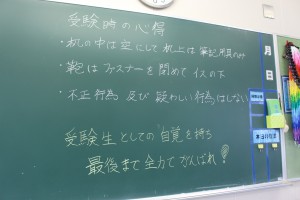 受験時の心得
・机の中は空にして机上は筆記用具のみ
・鞄はファスナーを閉めてイスの下
・不正行為及び疑わしい行為はしない
受験生としての自覚を持ち
最後まで全力でがんばれ!
月
日